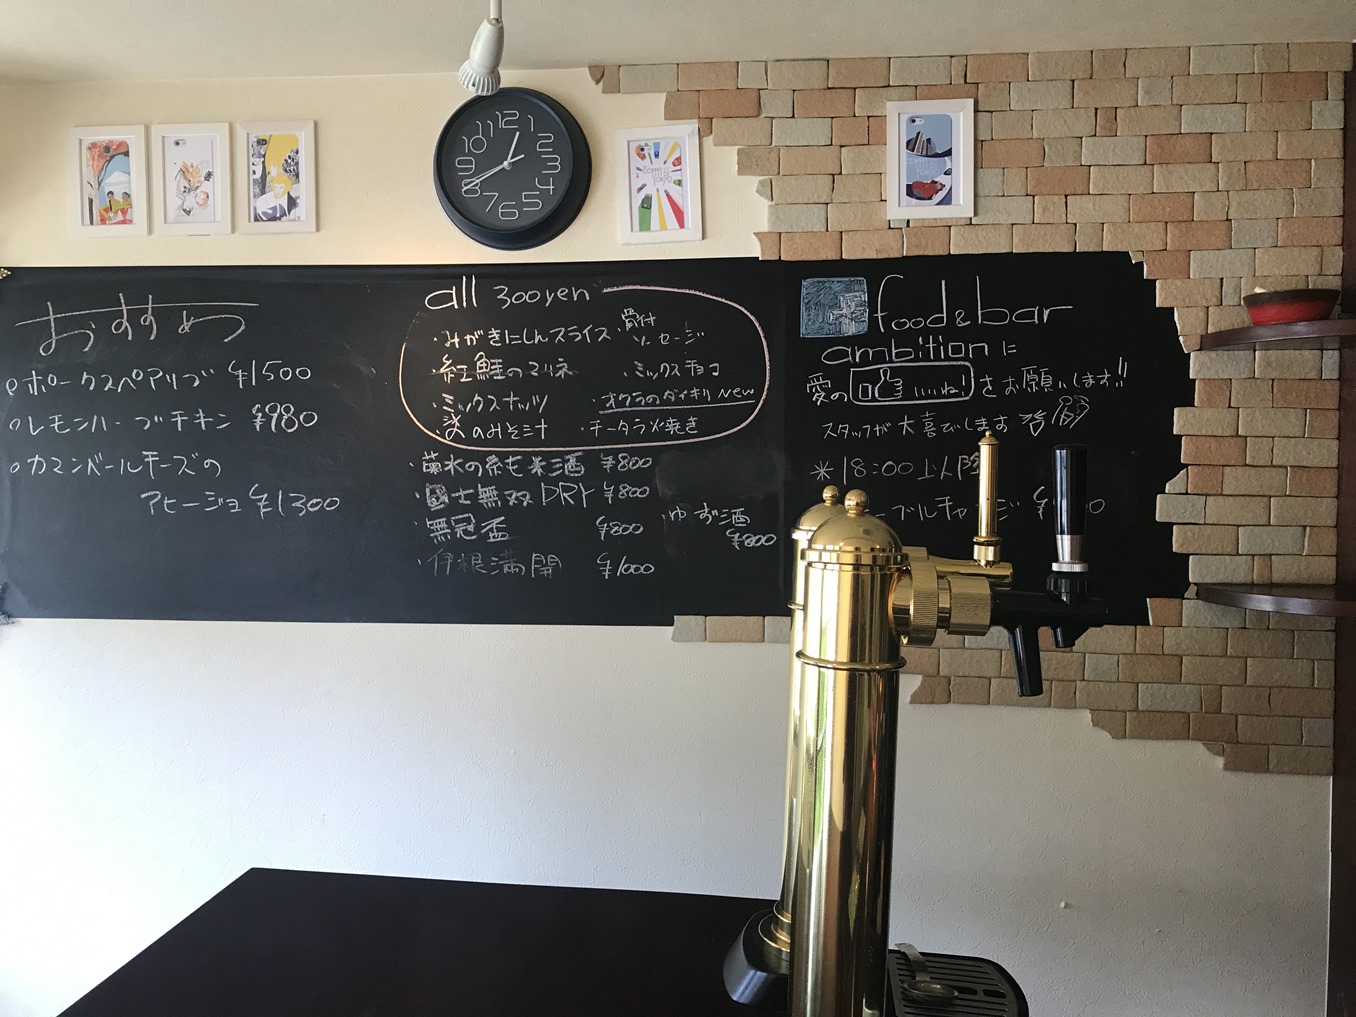 おすすめ
ポークスペアリブ ¥1500
レモンハーブチキン ¥980
カマンベールチーズの
アヒージョ ¥1300
all 300yen
・みがきにしんスライス
骨付
ソーセージ
・紅鮭のマリネ ・ミックスチョコ
・ミックスナッツ ・オクラのダイキリ New
・のみそ汁 ・チータラ火焼き
・菊水の純米酒 ¥800
・国士無双 DRY ¥800
・無冠盃 ¥800
・ゆず酒
¥800
・伊根満開 ¥1000
food&bar
ambitionに
愛の いいね! をお願いします!!
スタッフが大喜びします
※18:00以降
ーブルチャージ ¥
12
1
2
3
4
5
6
7
8
9
10
11